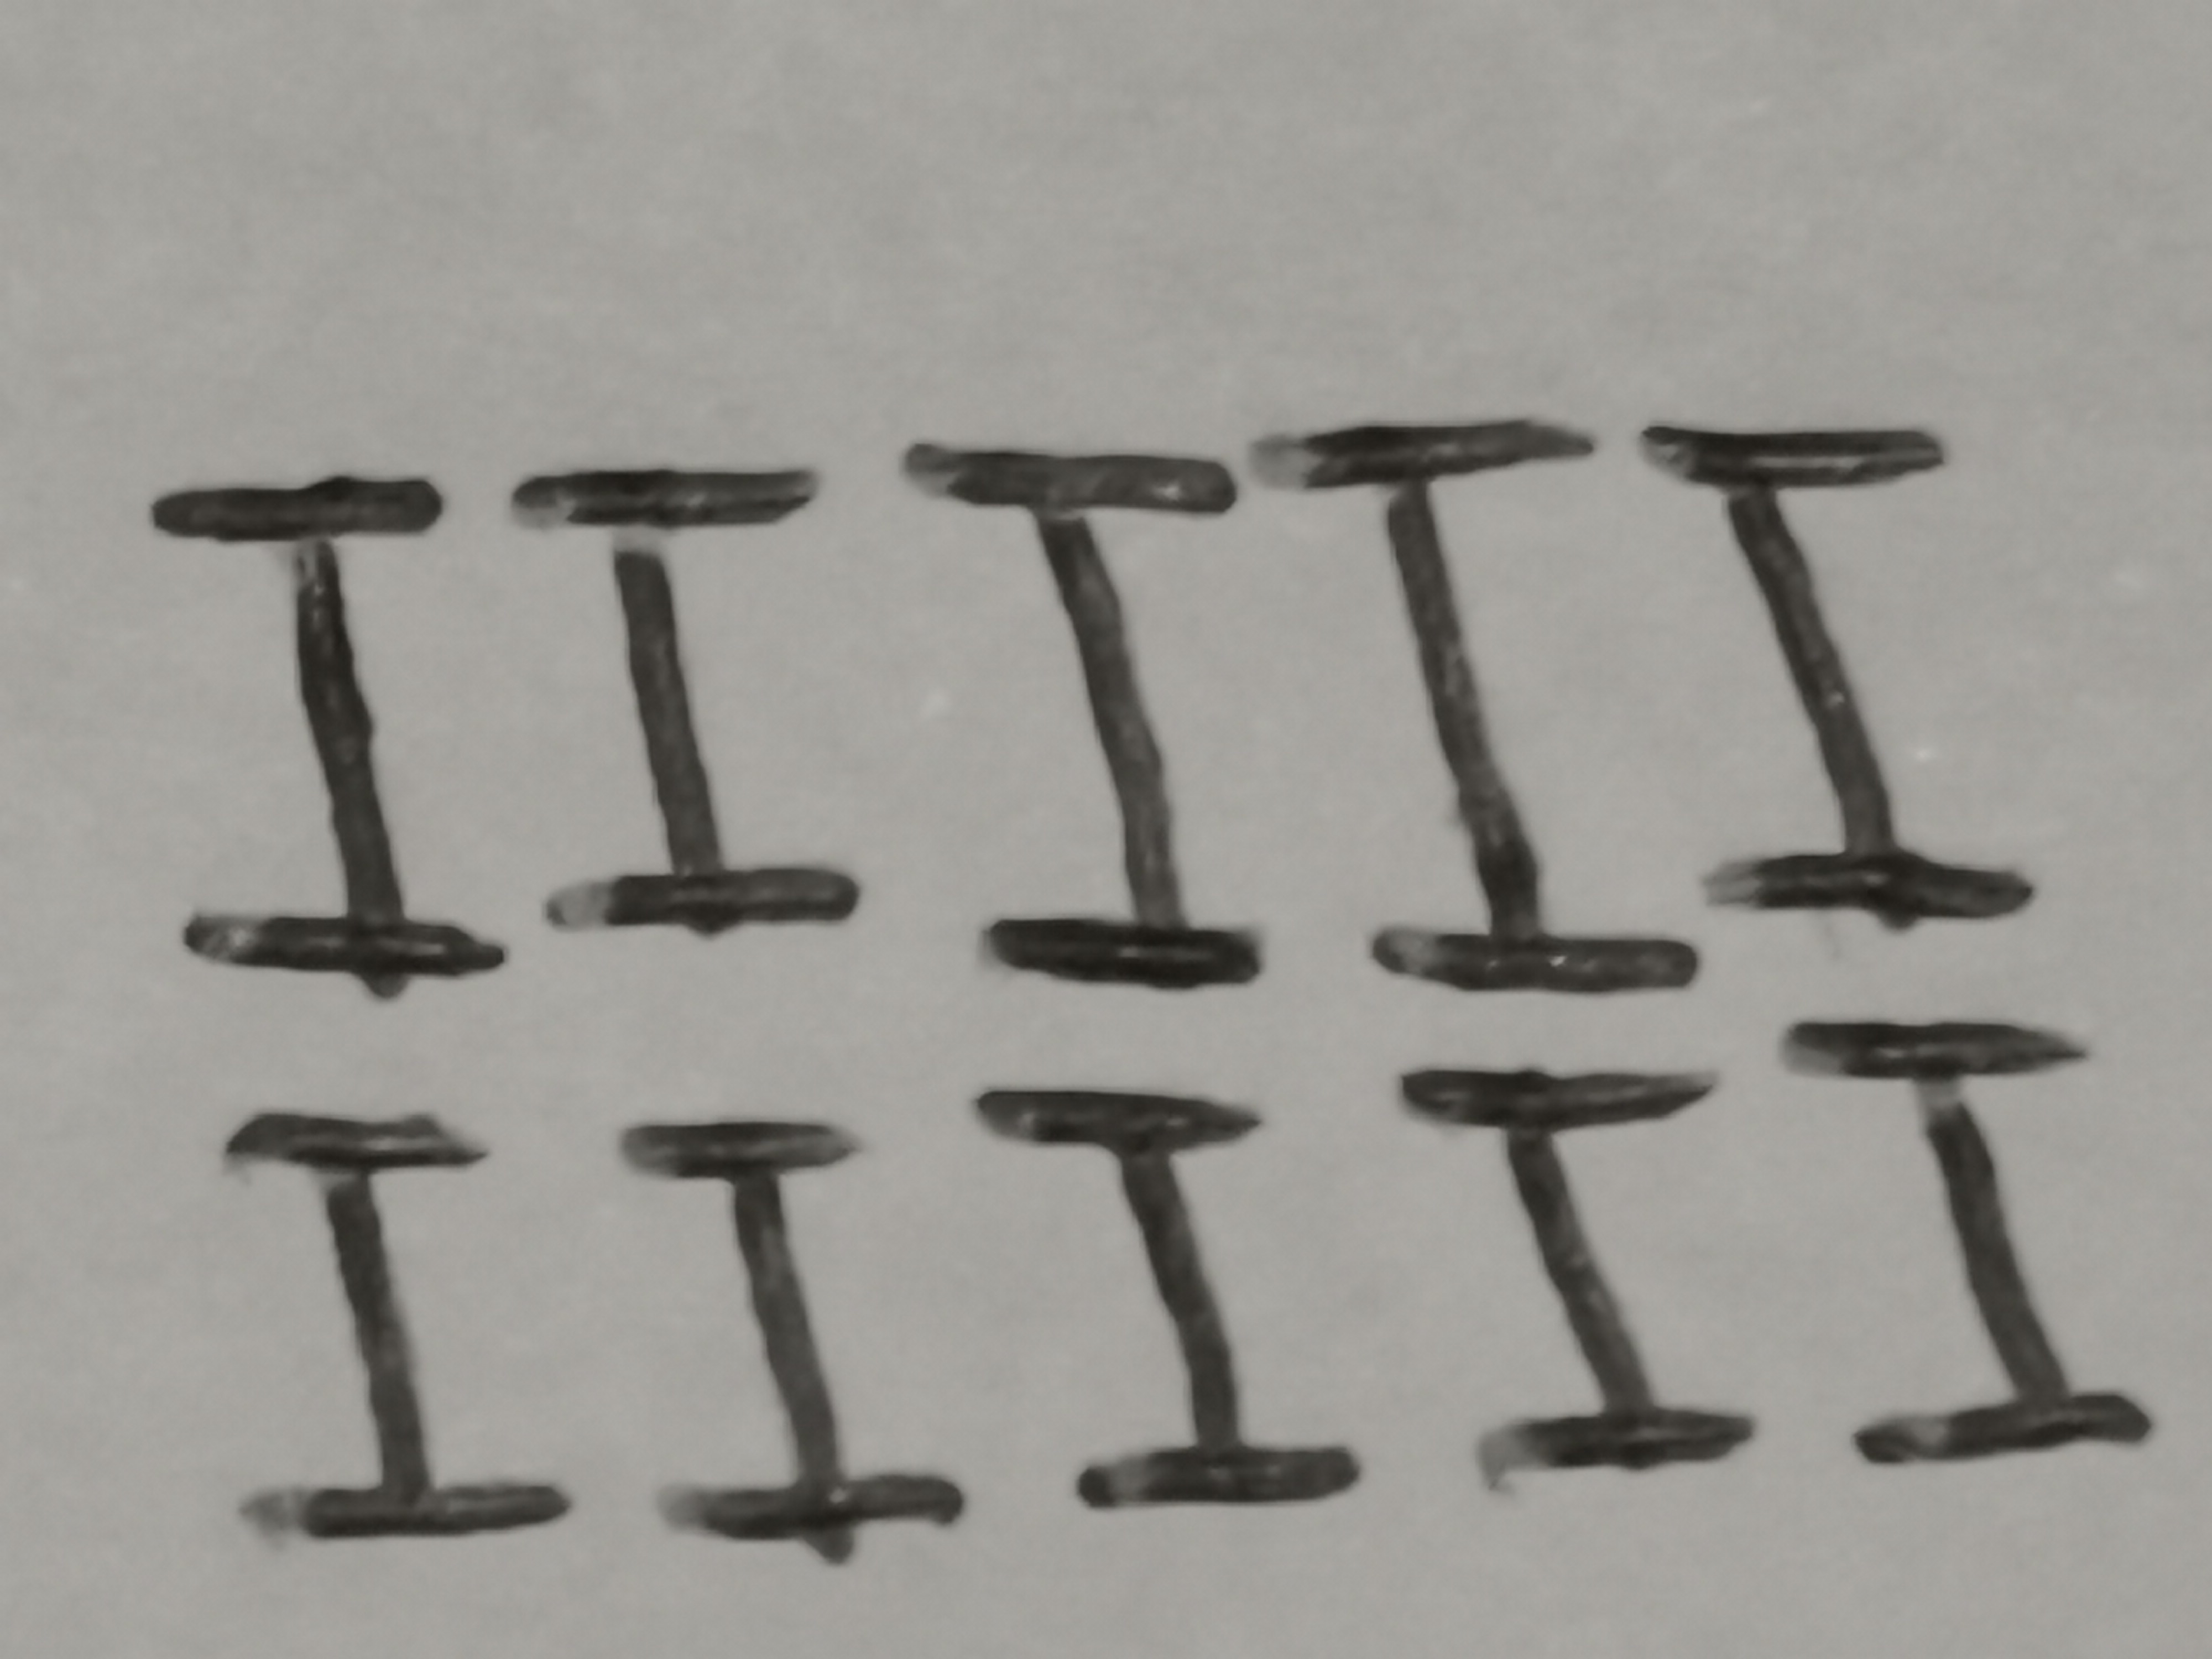 IIIII
IIIII